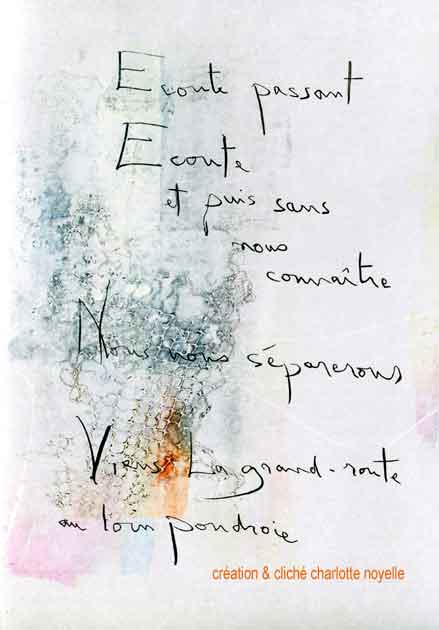 Ecoute passant
Ecoute
et puis sans
nous
connaître
Nous nous séparerons
Viens La grand-route
au loin poudroie
création & cliché charlotte noyelle